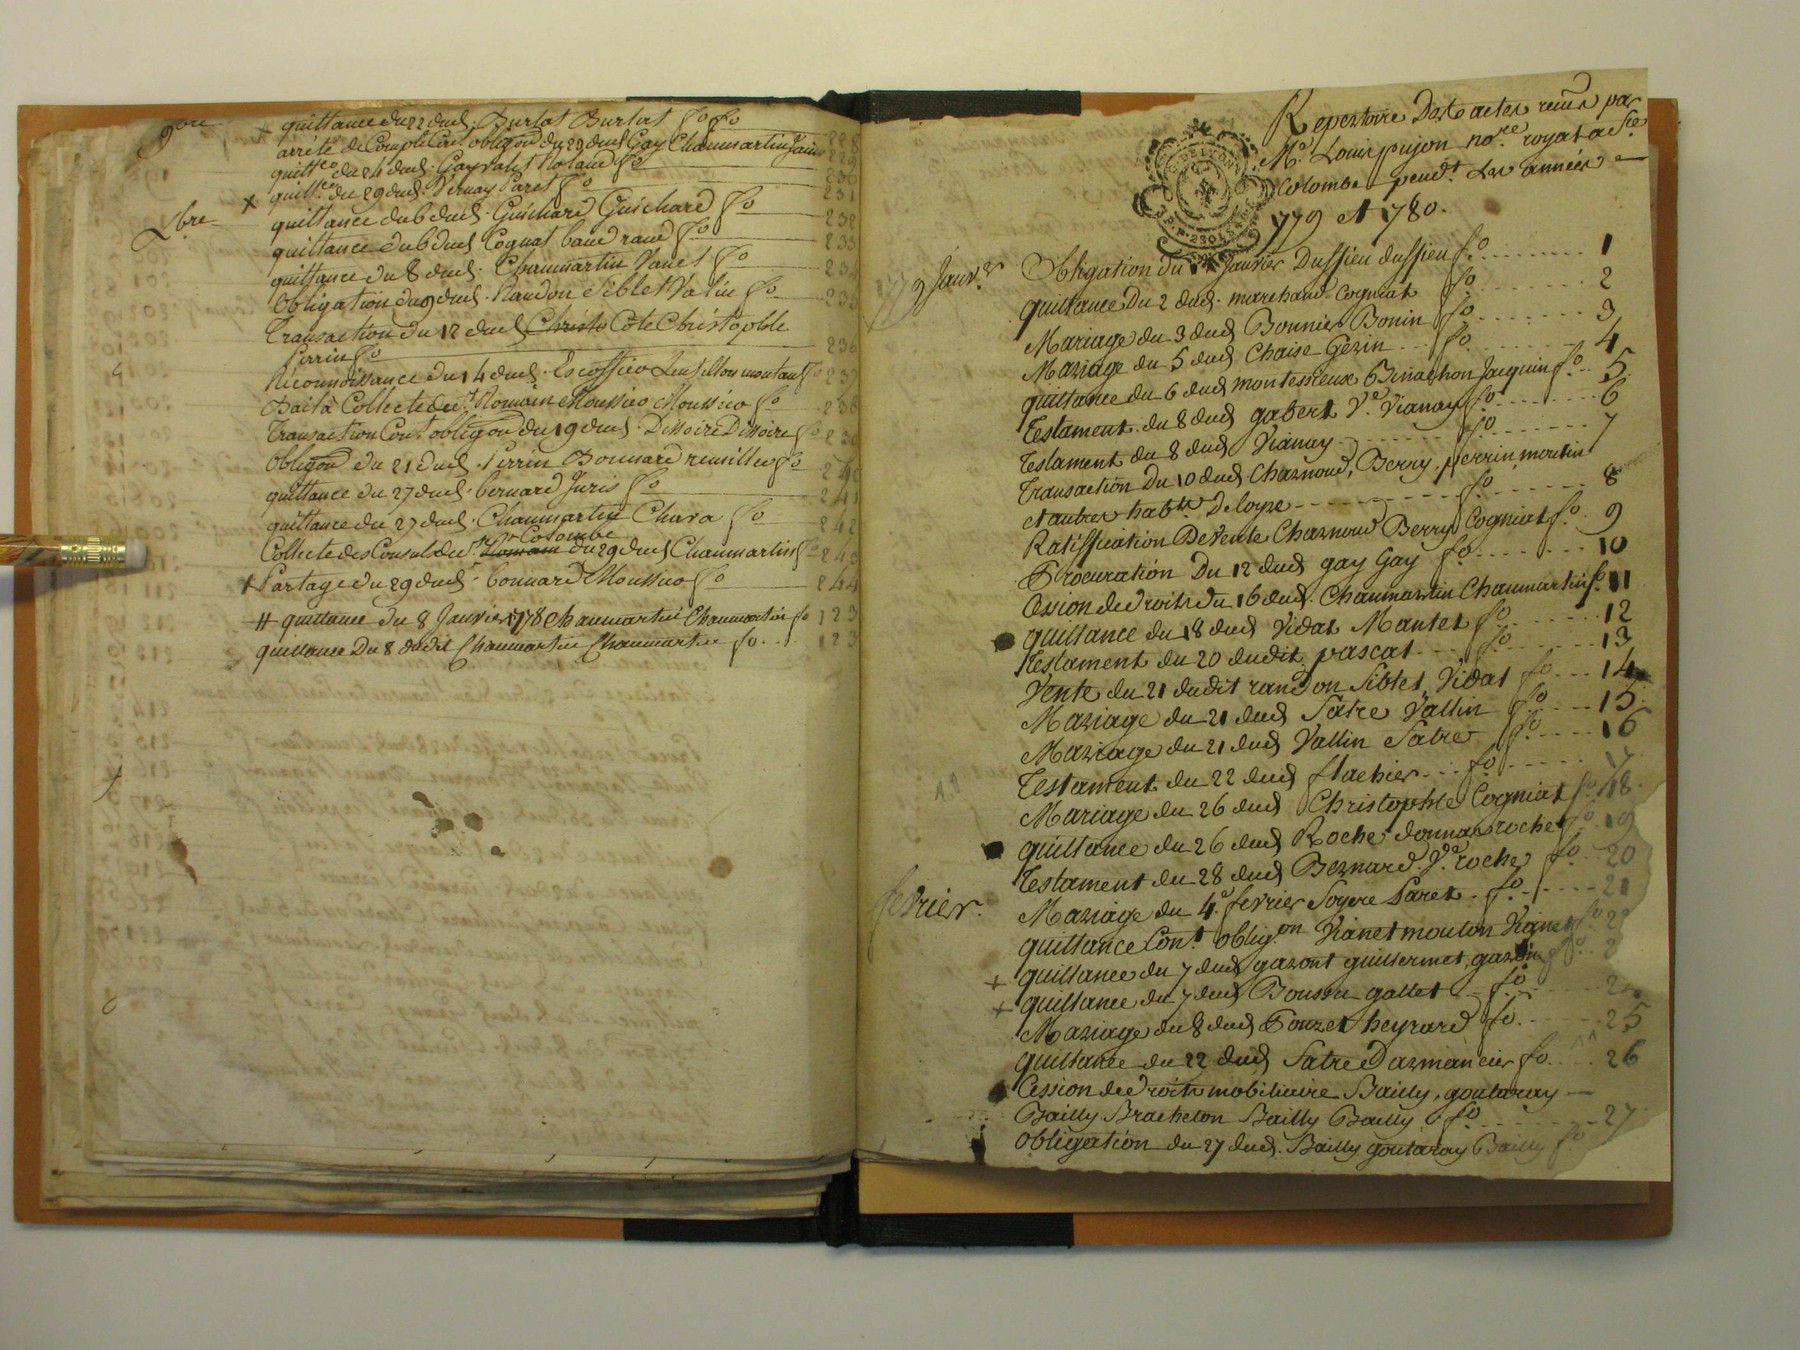 9bre
quittance du 22 dud. Burlat Burlat fo 228
arrêté de Compte Cont. obligon du 23 dud Gay Chaumartin 229
quitte du 24 dud. Gay Roland fo 230
+ quitte du 29 dud Vernay Paret fo 231
Xbre
quittance du 6 dud. Guichard Guichard fo 232
quittance du 6 dud Cognat baud raud fo 233
quittance du 8 dud. Chaumartin Vanel fo 234
Obligation du 9 dud. Randon Siblet Valin fo 235
Transaction du 12 dud Christo Cote Christophle
Perrin fo 236
Reconnoissance du 14 dud. Escoffier 237
Bail à Collecte de St Romain Moussier Moussier fo 238
Transaction Cont obligon du 19 dud. Dissoire Dissoire fo 239
Obligon du 21 dud. Perrin Bonnard fo 240
quittance du 27 dud. bernard Juris fo 241
quittance du 27 dud. Chaumartin Chara fo 242
Ste Colombe
Collecte des Consuls de St Romain du 29 dud Chaumartin fo 243
+ Partage du 29 dud. bonnard Moussier fo 244
# quittance du 8 Janvier 1778 Chaumartin Chaumartin fo 123
quittance Du 8 dudit Chaumartin Chaumartin fo 123
Repertoire Des actes recus par
Me Louis pujon nore royal a Ste
Colombe pendt. les années
1779 et 1780.
G. DE LYON
1779 Janvr
Obligation du Janvier Dussieu dussieu fo 1
quittance Du 2 dud. marchand Cogniat fo 2
Mariage du 3 dud Bonnier Bonin fo 3
Mariage du 5 dud Chaise Gezin fo 4
quittance du 6 dud montessieux Brinachon Jacquin fo 5
Testament du 8 dud gabert Ve Vianay fo 6
Testament du 8 dud Vianay fo 7
Transaction Du 10 dud Charnoud, Berry, perrin, moulin
et autres habts De loyre fo 8
Ratiffication De Vente Charnoud Berry Cogniat fo 9
Procuration Du 12 dud gay Gay fo 10
Cession de droits du 16 dud. Chaumartin Chaumartin fo 11
quittance du 18 dud Vidal Mantet fo 12
Testament du 20 dudit pascal fo 13
Vente du 21 dudit randon Siblet Vidal fo 14
Mariage du 21 dud Satre Vallin fo 15
Mariage du 21 dud Vallin Satre fo 16
Testament du 22 dud flachier fo 17
Mariage du 26 dud Christophle Cogniat fo 18
quittance du 26 dud Roche donnat roche fo 19
Testament du 28 dud Bernard Ve roche fo 20
fevrier.
Mariage du 4e fevrier Soyere Paret fo 21
quittance Cont. oblig.on Vianet mouton Vianet fo 22
+ quittance du 7 dud gazont guillermet gazon fo 2
+ quittance du 7 dud Boussu gallet fo 24
Mariage du 8 dud Pouzet heyrard fo 25
quittance du 22 dud Satre Darmancier fo 26
Cession de droits mobiliaire Bailly, goutaray
Bailly Bracheton Bailly Bailly fo 27
Obligation du 27 dud. Bailly goutaray Bailly fo